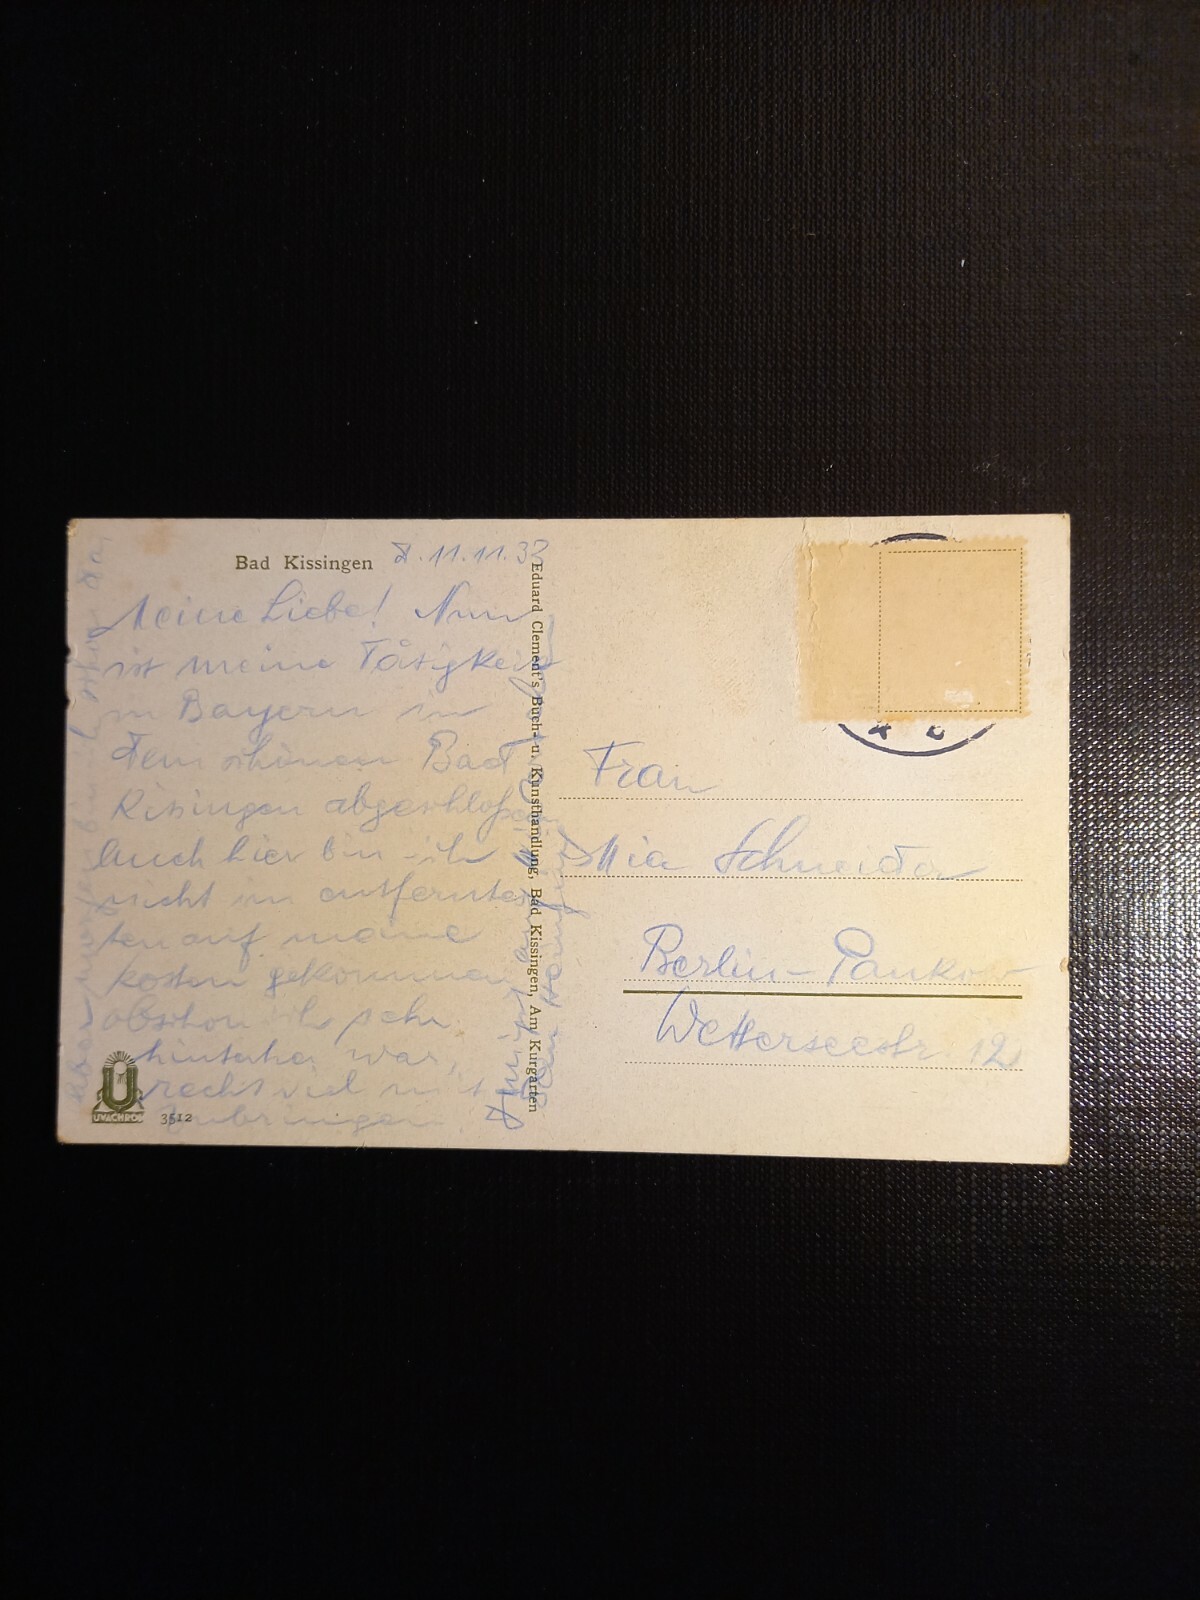 Bad Kissingen d. 11.11.33
Meine Liebe! Nun
ist meine Tätigkeit
in Bayern in
dem schönen Bad
Kissingen abgeschloßen
Auch hier bin ich
nicht im entferntes
ten auf meine
kosten gekommen
obschon ich sehr
hinterher war,
recht viel mit
zubringen
Eduard Clement's Buch- u. Kunsthandlung, Bad Kissingen, Am Kurgarten
Frau
Mia Schneider
Berlin-Pankow
Wetterseestr. 12
UVACHROM
3512